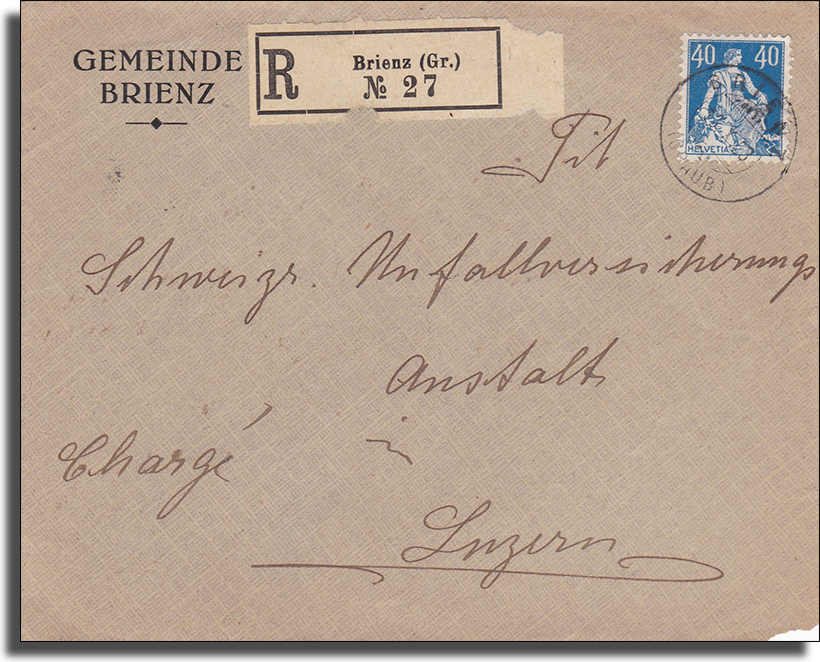 GEMEINDE
BRIENZ
R
Brienz (Gr.)
№ 27
40 40
HELVETIA
(GRAUB)
Tit
Schweizr. Unfallversicherungs
Anstalt
Chargé
in
Luzern